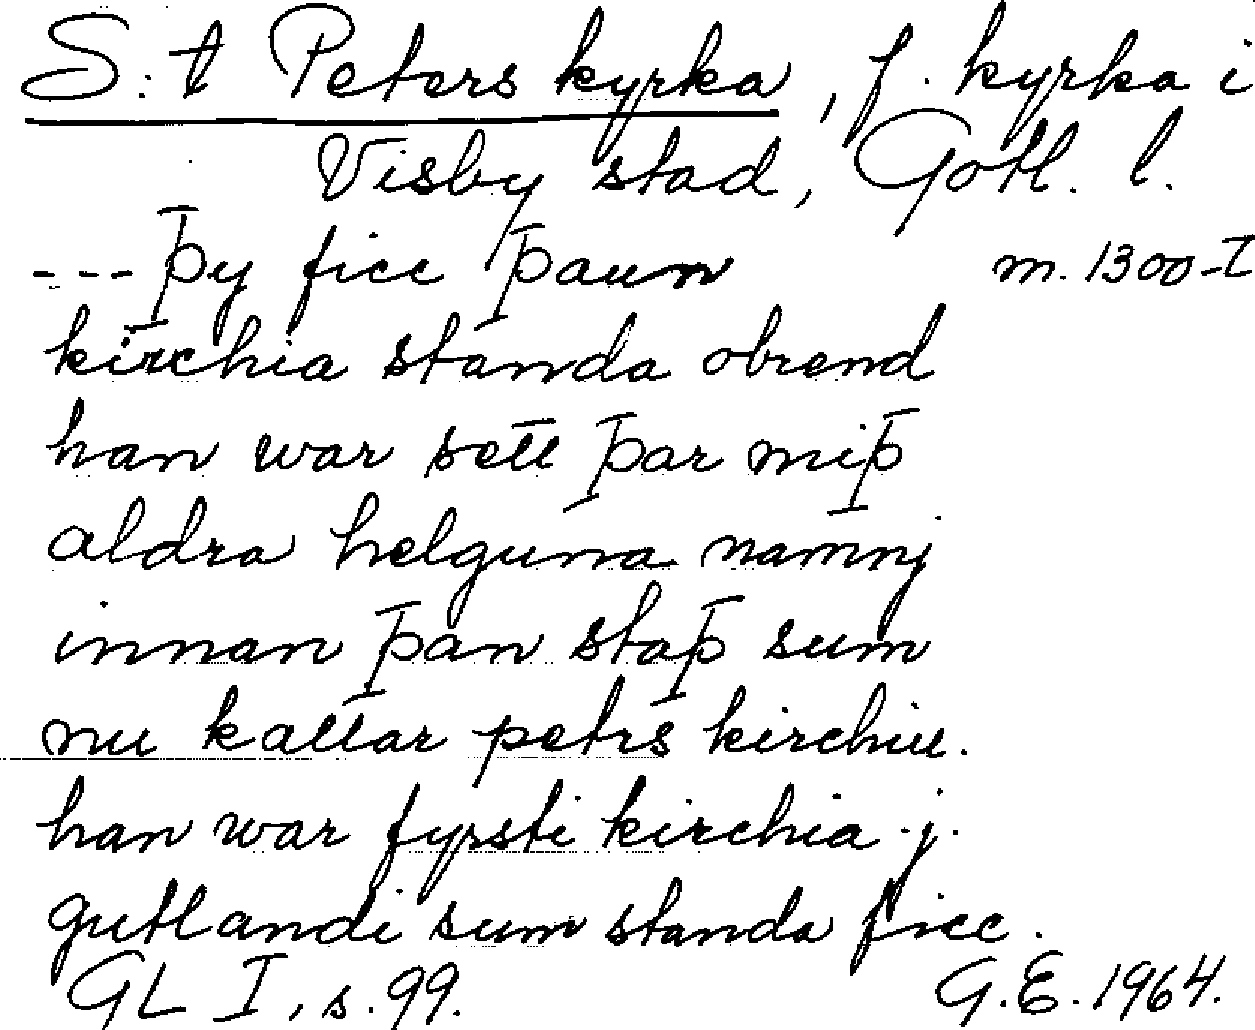 S:t Peters kyrka, f. kyrka i
Visby stad, Gotl. l.
--- þy ficc þaun m. 1300-T
kirchia standa obrend
han war sett þar miþ
aldra helguna namnj
innan þan staþ sum
nu kallar petrs kirchiu.
han war fyrsti kirchia .j.
gutlandi sum standa ficc.
GL I, s. 99. G.E. 1964.